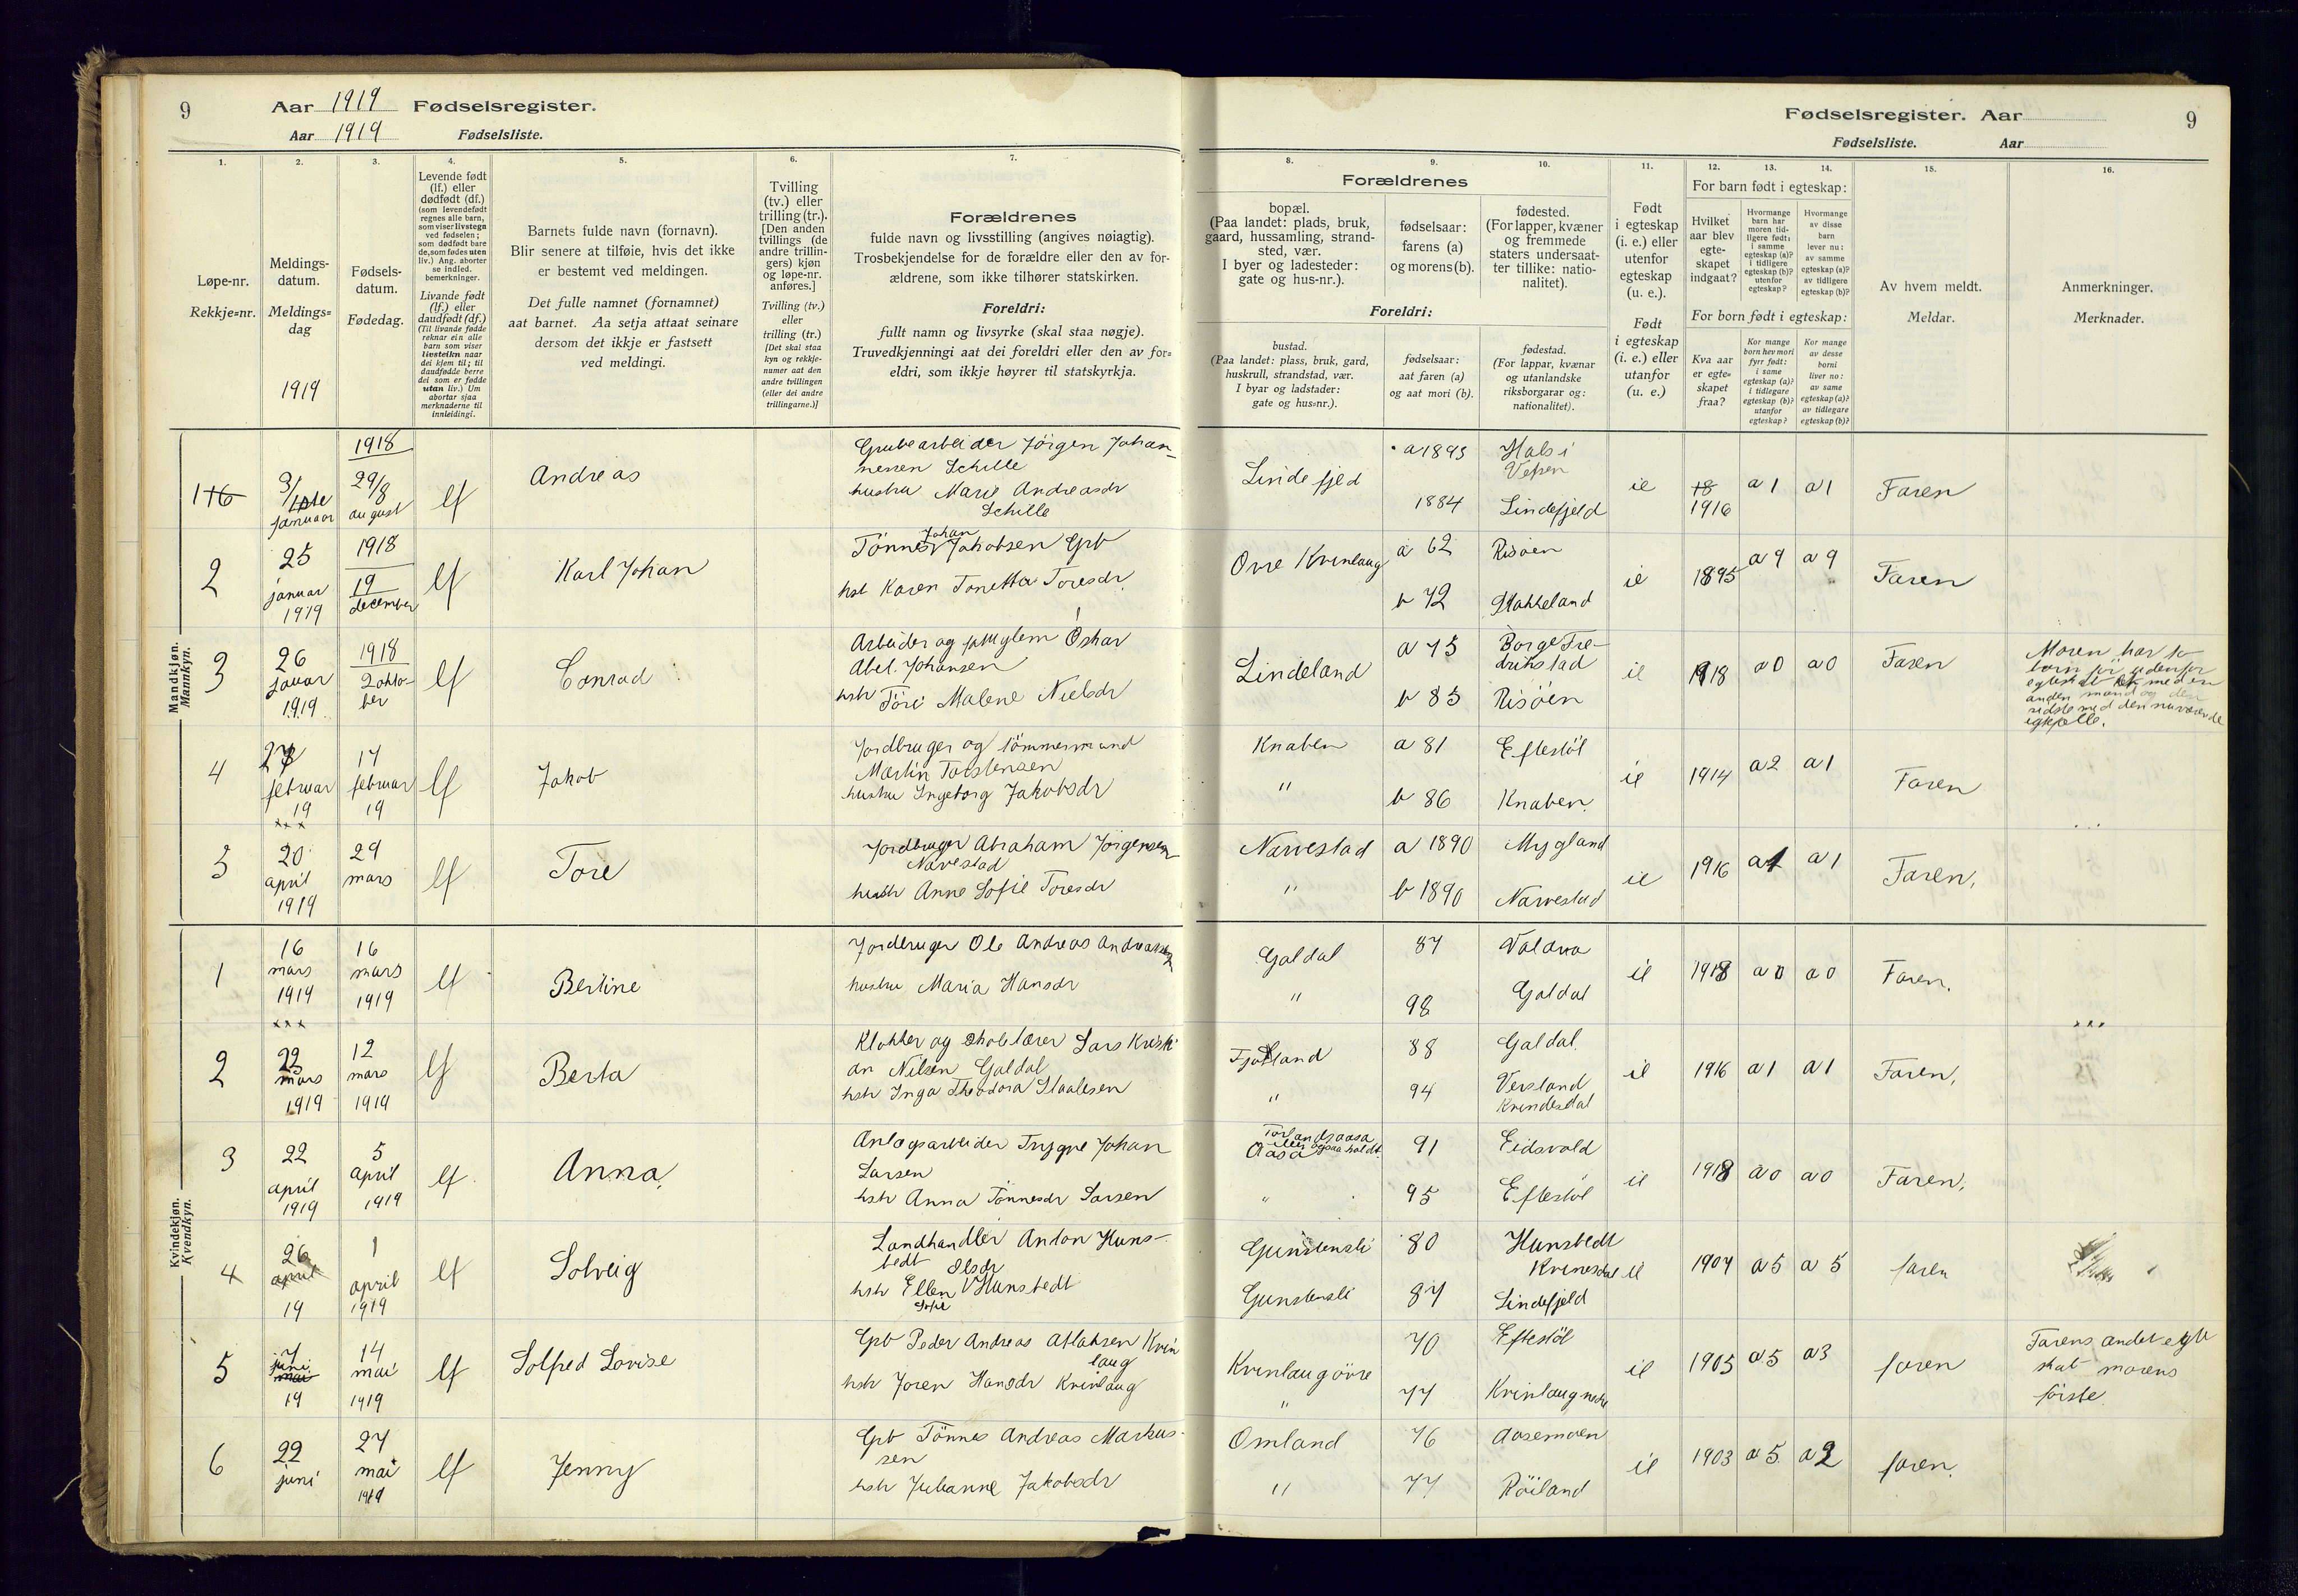 9
Aar 1919 Fødselsregister.
Aar 1919 Fødselsliste.
1.
2.
3.
4.
5.
6.
7.
Løpe-nr.
Rekkje=nr.
Meldings-
datum.
Meldings=
dag
1919
Fødsels-
datum.
Fødedag.
Levende født
(lf.) eller
dødfødt (df.)
(som levendefødt
regnes alle barn,
som viser livstegn
ved fødselen;
som dødfødt bare
de, som fødes uten
liv.) Ang. aborter
se indled.
bemerkninger.
Livande født
(lf.) eller
daudfødt (df.)
(Til livande fødde
reknar ein alle
barn som viser
livsteikn naar
dei kjem til; til
daudfødde berre
dei som er fødde
utan liv.) Um
abortar sjaa
merknaderne til
innleidingi.
Barnets fulde navn (fornavn).
Blir senere at tilføie, hvis det ikke
er bestemt ved meldingen.
Det fulle namnet (fornamnet)
aat barnet. Aa setja attaat seinare
dersom det ikkje er fastsett
ved meldingi.
Tvilling
(tv.) eller
trilling (tr.).
[Den anden
tvillings (de
andre trillin-
gers) kjøn
og løpe-nr.
anføres.]
Tvilling (tv.)
eller
trilling (tr.)
[Det skal staa
kyn og rekkje-
numer aat den
andre tvillingen
(eller dei andre
trillingarne.)]
Forældrenes
fulde navn og livsstilling (angives nøiagtig).
Trosbekjendelse for de forældre eller den av for-
ældrene, som ikke tilhører statskirken.
Foreldri:
fullt namn og livsyrke (skal staa nøgje).
Truvedkjenningi aat dei foreldri eller den av for=
eldri, som ikkje høyrer til statskyrkja.
Mandkjøn.
Mannkyn.
1
3/
januar
1918
29/8
august
lf
Andreas
Grubearbeider Jörgen Johan-
nessen Schille
hustru Marie Andreasdr
Schille
2
25
januar
1919
1918
19
december
lf
Karl Johan
Johan
Tönnes Jakobsen Gpb
hst Karen Tonetta Toresdr.
3
26
januar
1919
1918
2 okto-
ber
lf
Conrad
Arbeider og Oskar
Abel. Johansen
hstr Tore Malene Nielsdr
4
27
februar
19
x x x
17
februar
19
lf
Jakob
Jordbruger og tömmermand
Martin Torstensen
hustru Ingeborg Jakobsdr
5
20
april
1919
29
mars
lf
Tore
Jordbruger Abraham Jörgensen
Narvestad
hustr Anne Sofie Toresdr
Kvindekjøn.
Kvendkyn.
1
16
mars
1919
x x x
16
mars
1919
lf
Bertine
Jordbruger Ole Andreas Andreassen
hustru Maria Hansdr
2
22
mars
1919
12
mars
1919
lf
Berta
Klokker og skolelærer Lars Kristi
an Nilsen Galdal
hstr Inga Theodora Staalesen
3
22
april
1919
5
april
1919
lf
Anna
Anlægsarbeider Trygve Johan
Larsen
hstr Anna Tönnesdr Larsen
4
26
april
19
1
april
1919
lf
Solveig
Landhandler Anton Huns-
tedt Olsdr
hstr Ellen Hunstedt
Sofie
5
7
juni
mai
19
14
mai
1919
lf
Solfred Lovise
Gpb Peder Andreas Aslaksen Kvin
laug
hstr Joren Hansdr Kvinlaug
6
22
juni
27
mai
1919
lf
Jenny
Gpb Tönnes Andreas Markus-
sen
hstr Julianne Jakobsdr
Fødselsregister. Aar
9
Fødselsliste. Aar
8.
9.
10.
11.
12.
13.
14.
15.
16.
Forældrenes
bopæl.
(Paa landet: plads, bruk,
gaard, hussamling, strand-
sted, vær.
I byer og ladesteder:
gate og hus-nr.).
fødselsaar:
farens (a)
og morens (b).
fødested.
(For lapper, kvæner
og fremmede
staters undersaat-
ter tillike: natio-
nalitet).
Foreldri:
bustad.
(Paa landet: plass, bruk, gard,
huskrull, strandstad, vær.
I byar og ladstader:
gate og hus=nr.).
fødselsaar:
aat faren (a)
og aat mori (b).
fødestad.
(For lappar, kvænar
og utanlandske
riksborgarar og:
nationalitet).
Født
i egteskap
(i. e.) eller
utenfor
egteskap
(u. e.).
Født
i egteskap
(i. e.) eller
utanfor
(u. e.)
For barn født i egteskap:
Hvilket
aar blev
egte-
skapet
indgaat?
Hvormange
barn har
moren tid-
ligere født:
i samme
egteskap (a)?
i tidligere
egteskap (b)?
utenfor
egteskap?
Hvormange
av disse
barn
lever nu:
av samme
egteskap (a)?
av tidligere
egteskap (b)?
For born født i egteskap:
Kva aar
er egte=
skapet
fraa?
Kor mange
born hev mori
fyrr født:
i same
egteskap (a)?
i tidlegare
egteskap (b)?
utanfor
egteskap?
Kor mange
av desse
borni
liver no:
av same
egteskap (a)?
av tidlegare
egteskap (b)?
Av hvem meldt.
Meldar.
Anmerkninger.
Merknader.
Lindefjeld
a 1893
1884
Hals i
Vefsen
Lindefjeld
ie
18
1916
a 1
a 1
Faren
Övre Kvinlaug
a 62
b 72
Risöen
Stakkeland
ie
1895
a 9
a 9
Faren
Lindeland
a 75
b 85
Borge Fre-
drikstad
Risöen
ie
1918
a 0
a 0
Faren
Moren har to
barn för udenfor
med en
anden mand og den
sidste med den nuværende
Knaben
"
a 81
b 86
Eftestöl
Knaben.
ie
1914
a 2
a 1
Faren
Narvestad
"
a 1890
b 1890
Mygland
Narvestad
ie
1916
a 1
a 1
Faren,
Galdal
"
87
98
Galdal
ie
1918
a 0
a 0
Faren.
x x x
Fjotland
"
88
94
Galdal.
Versland
Kvinesdal
ie
1916
a 1
a 1
Faren,
Aasa
"
91
95
Eidsvold
Eftestöl
ie
1918
a 0
a 0
Faren,
Gunstensli
Gunstensli
80
87
Hunstedt
Kvinesdal
Lindefjeld
ie
1907
a 5
a 5
faren
Kvinlaug övre
"
70
77
Eftestöl
Kvinlaug nedre
ie
1905
a 5
a 3
faren
Farens andet egte
skab morens
förste.
Omland
"
76
77
Aasemoen
Röiland
ie
1903
a 5.
a 2
faren.